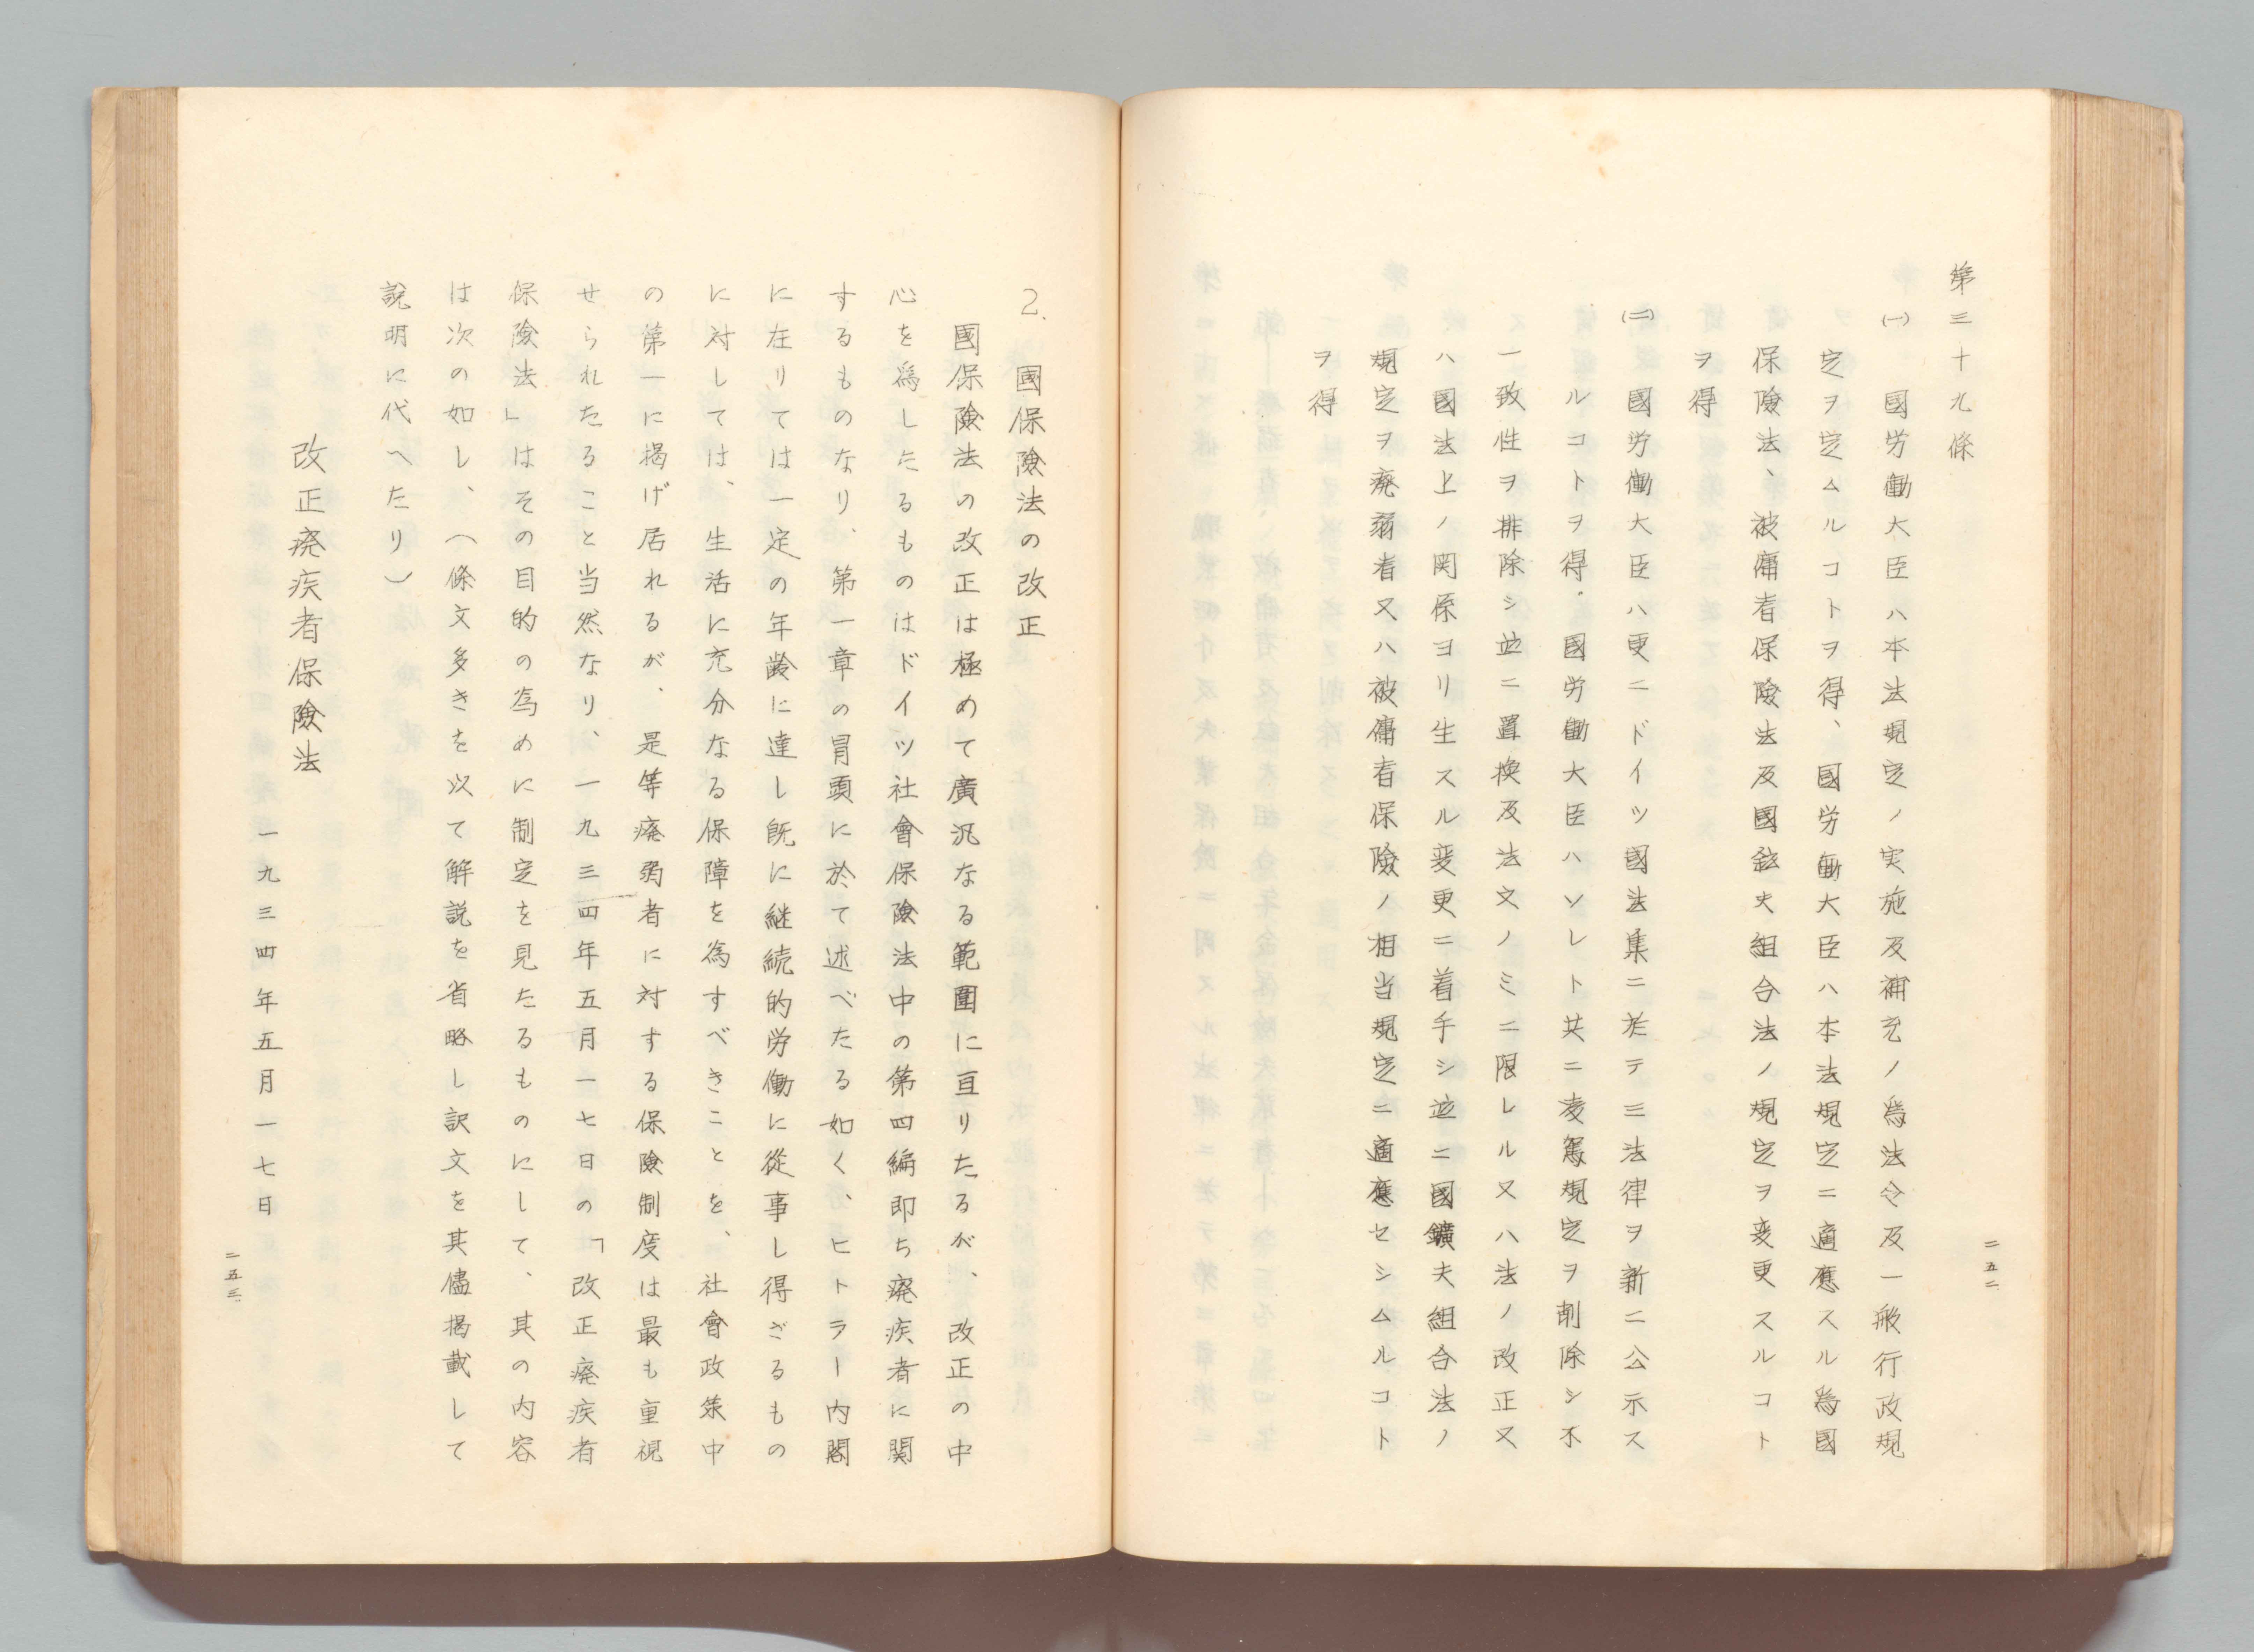 第三十九條
(一) 國労働大臣ハ本法規定ノ実施及補充ノ為法令及一般行政規
定ヲ定ムルコトヲ得、國労働大臣ハ本法規定ニ適應スル為國
保險法、被傭者保險法及國鉱夫組合法ノ規定ヲ変更スルコト
ヲ得
(二) 國労働大臣ハ更ニドイツ國法集ニ於テ三法律ヲ新ニ公示ス
ルコトヲ得.國労働大臣ハソレト共ニ凌駕規定ヲ削除シ不
一致性ヲ排除シ並ニ置換及法文ノミニ限レル又ハ法ノ改正又
ハ國法上ノ関係ヨリ生スル変更ニ着手シ並ニ國鑛夫組合法ノ
規定ヲ廃弱者又ハ被傭者保險ノ相当規定ニ適應セシムルコト
ヲ得
二五二
2. 國保險法の改正
國保險法の改正は極めて廣汎なる範圍に亘りたるが、改正の中
心を爲したるものはドイツ社會保險法中の第四編即ち廢疾者に関
するものなり、第一章の冒頭に於て述べたる如く、ヒトラー内閣
に在りては一定の年齢に達し既に継続的労働に從事し得ざるもの
に対しては、生活に充分なる保障を為すべきことを、社會政策中
の第一に揭げ居れるが、是等癈弱者に対する保險制度は最も重視
せられたること当然なり、一九三四年五月一七日の「改正癈疾者
保險法」はその目的の為めに制定を見たるものにして、其の内容
は次の如し、(條文多きを以て解説を省略し訳文を其儘揭載して
說明に代へたり)
改正癈疾者保險法
一九三四年五月一七日
二五三